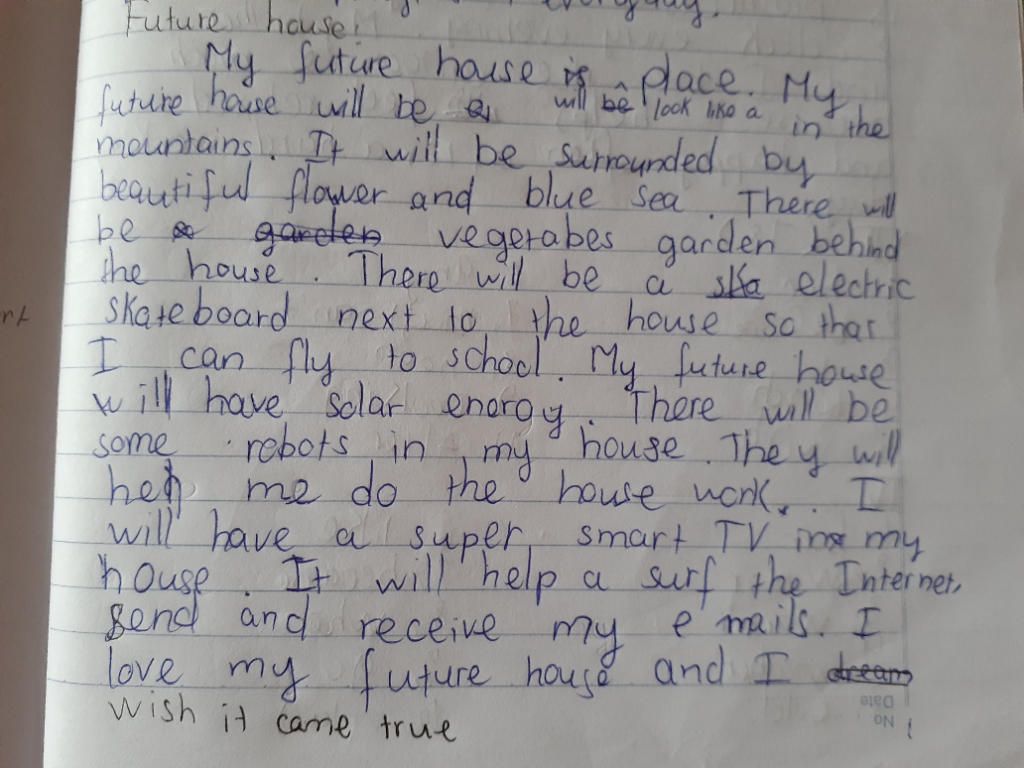 everyday.
Future house:
My future house is place. My
will be look like a
future house will be a in the
mountains. It will be surrounded by
beautiful flower and blue sea. There will
be a garden vegetabes garden behind
the house. There will be a ska electric
skateboard next to the house so that
I can fly to school. My future house
will have solar energy. There will be
some robots in my house. They will
help me do the house work. I
will have a super smart TV in my
house. It will help a surf the Internet,
send and receive my e mails. I
love my future house and I dream
wish it came true
No
Date